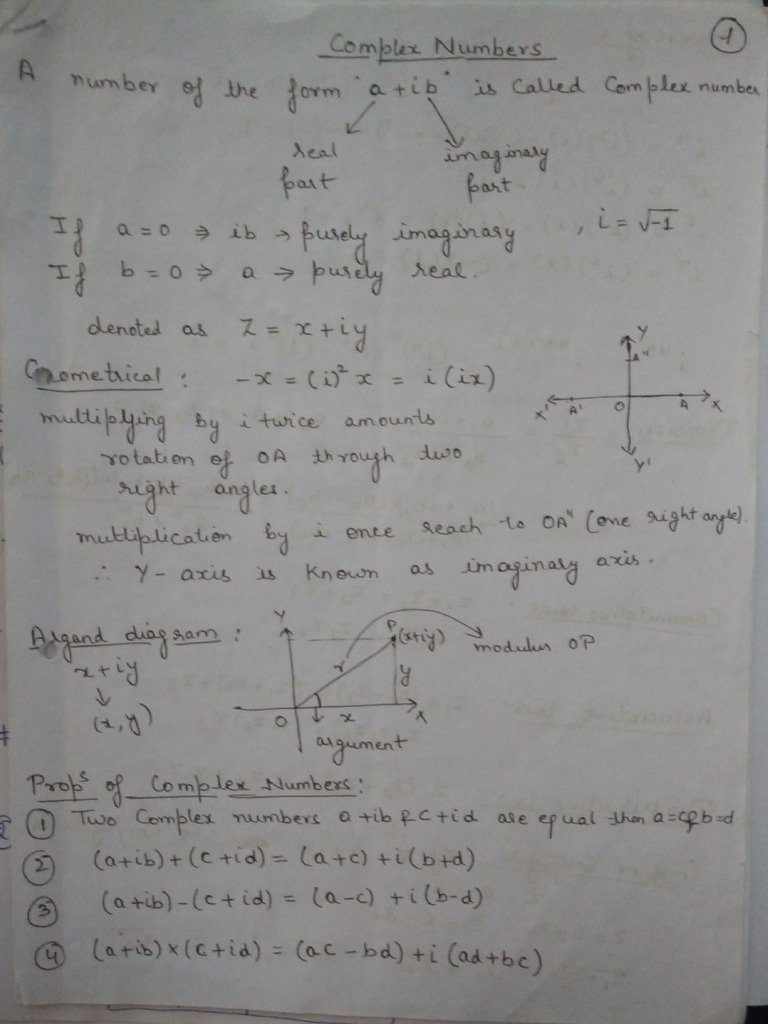 1
Complex Numbers
A number of the form "a+ib" is Called Complex number
real part
imaginary part
If a=0 ⇒ ib → purely imaginary , i = √-1
If b=0 ⇒ a → purely real.
denoted as Z = x+iy
Geometrical : -x = (i)² x = i(ix)
Y
A"
X' A' O A X
Y'
multiplying by i twice amounts
rotation of OA through two
right angles.
multiplication by i once reach to OA" (one right angle).
∴ Y-axis is known as imaginary axis.
Argand diagram :
x+iy
↓
(x,y)
Y
P (x+iy)
modulus OP
r
y
O x X
argument
Propˢ of Complex Numbers:
① Two Complex numbers a+ib & c+id are equal then a=c & b=d
② (a+ib)+(c+id) = (a+c)+i(b+d)
③ (a+ib)-(c+id) = (a-c)+i(b-d)
④ (a+ib)×(c+id) = (ac-bd)+i(ad+bc)